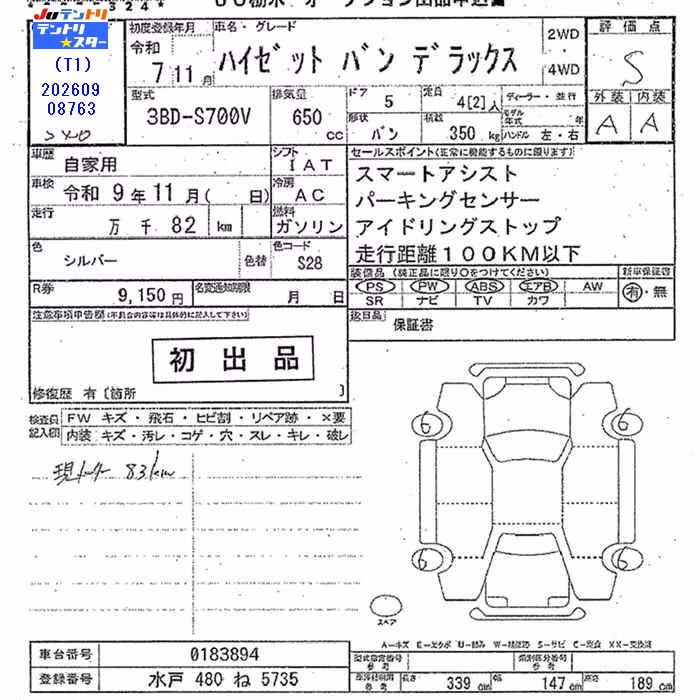 JU テントリ
テントリ★スター
(T1)
202609
08763
初度登録年月
令和
7年11月
車名・グレード
ハイゼット バン デラックス
2WD
4WD
評価点
S
外装 内装
A A
型式
3BD-S700V
排気量
650 cc
ドア
5
定員
4[2]人
形状
バン
積載
350 kg
ディーラー・並行
モデル年式 年
ハンドル 左・右
車歴
自家用
シフト
IAT
車検 令和 9年11月( 日)
冷房
AC
走行
万 千 82 km
燃料
ガソリン
色
シルバー
色替
色コード
S28
R券
9,150円
名変通知期限
月 日
セールスポイント(正常に機能するものに限ります)
スマートアシスト
パーキングセンサー
アイドリングストップ
走行距離100KM以下
装備品(純正品に限り○をつけてください)
PS PW ABS エアB AW
SR ナビ TV カワ
新車保証書
有・無
後日品
保証書
注意事項申告欄(不具合の内容は具体的に記入して下さい)
初出品
修復歴 有〔箇所 〕
検査員記入欄
FW キズ・飛石・ヒビ割・リペア跡・×要
内装 キズ・汚レ・コゲ・穴・スレ・キレ・破レ
現メーター 83km
6 6
6 6
スペア
車台番号
0183894
登録番号
水戸 480 ね 5735
型式指定番号 参考
類別区分番号 参考
長さ 339 cm
幅 147 cm
高さ 189 cm